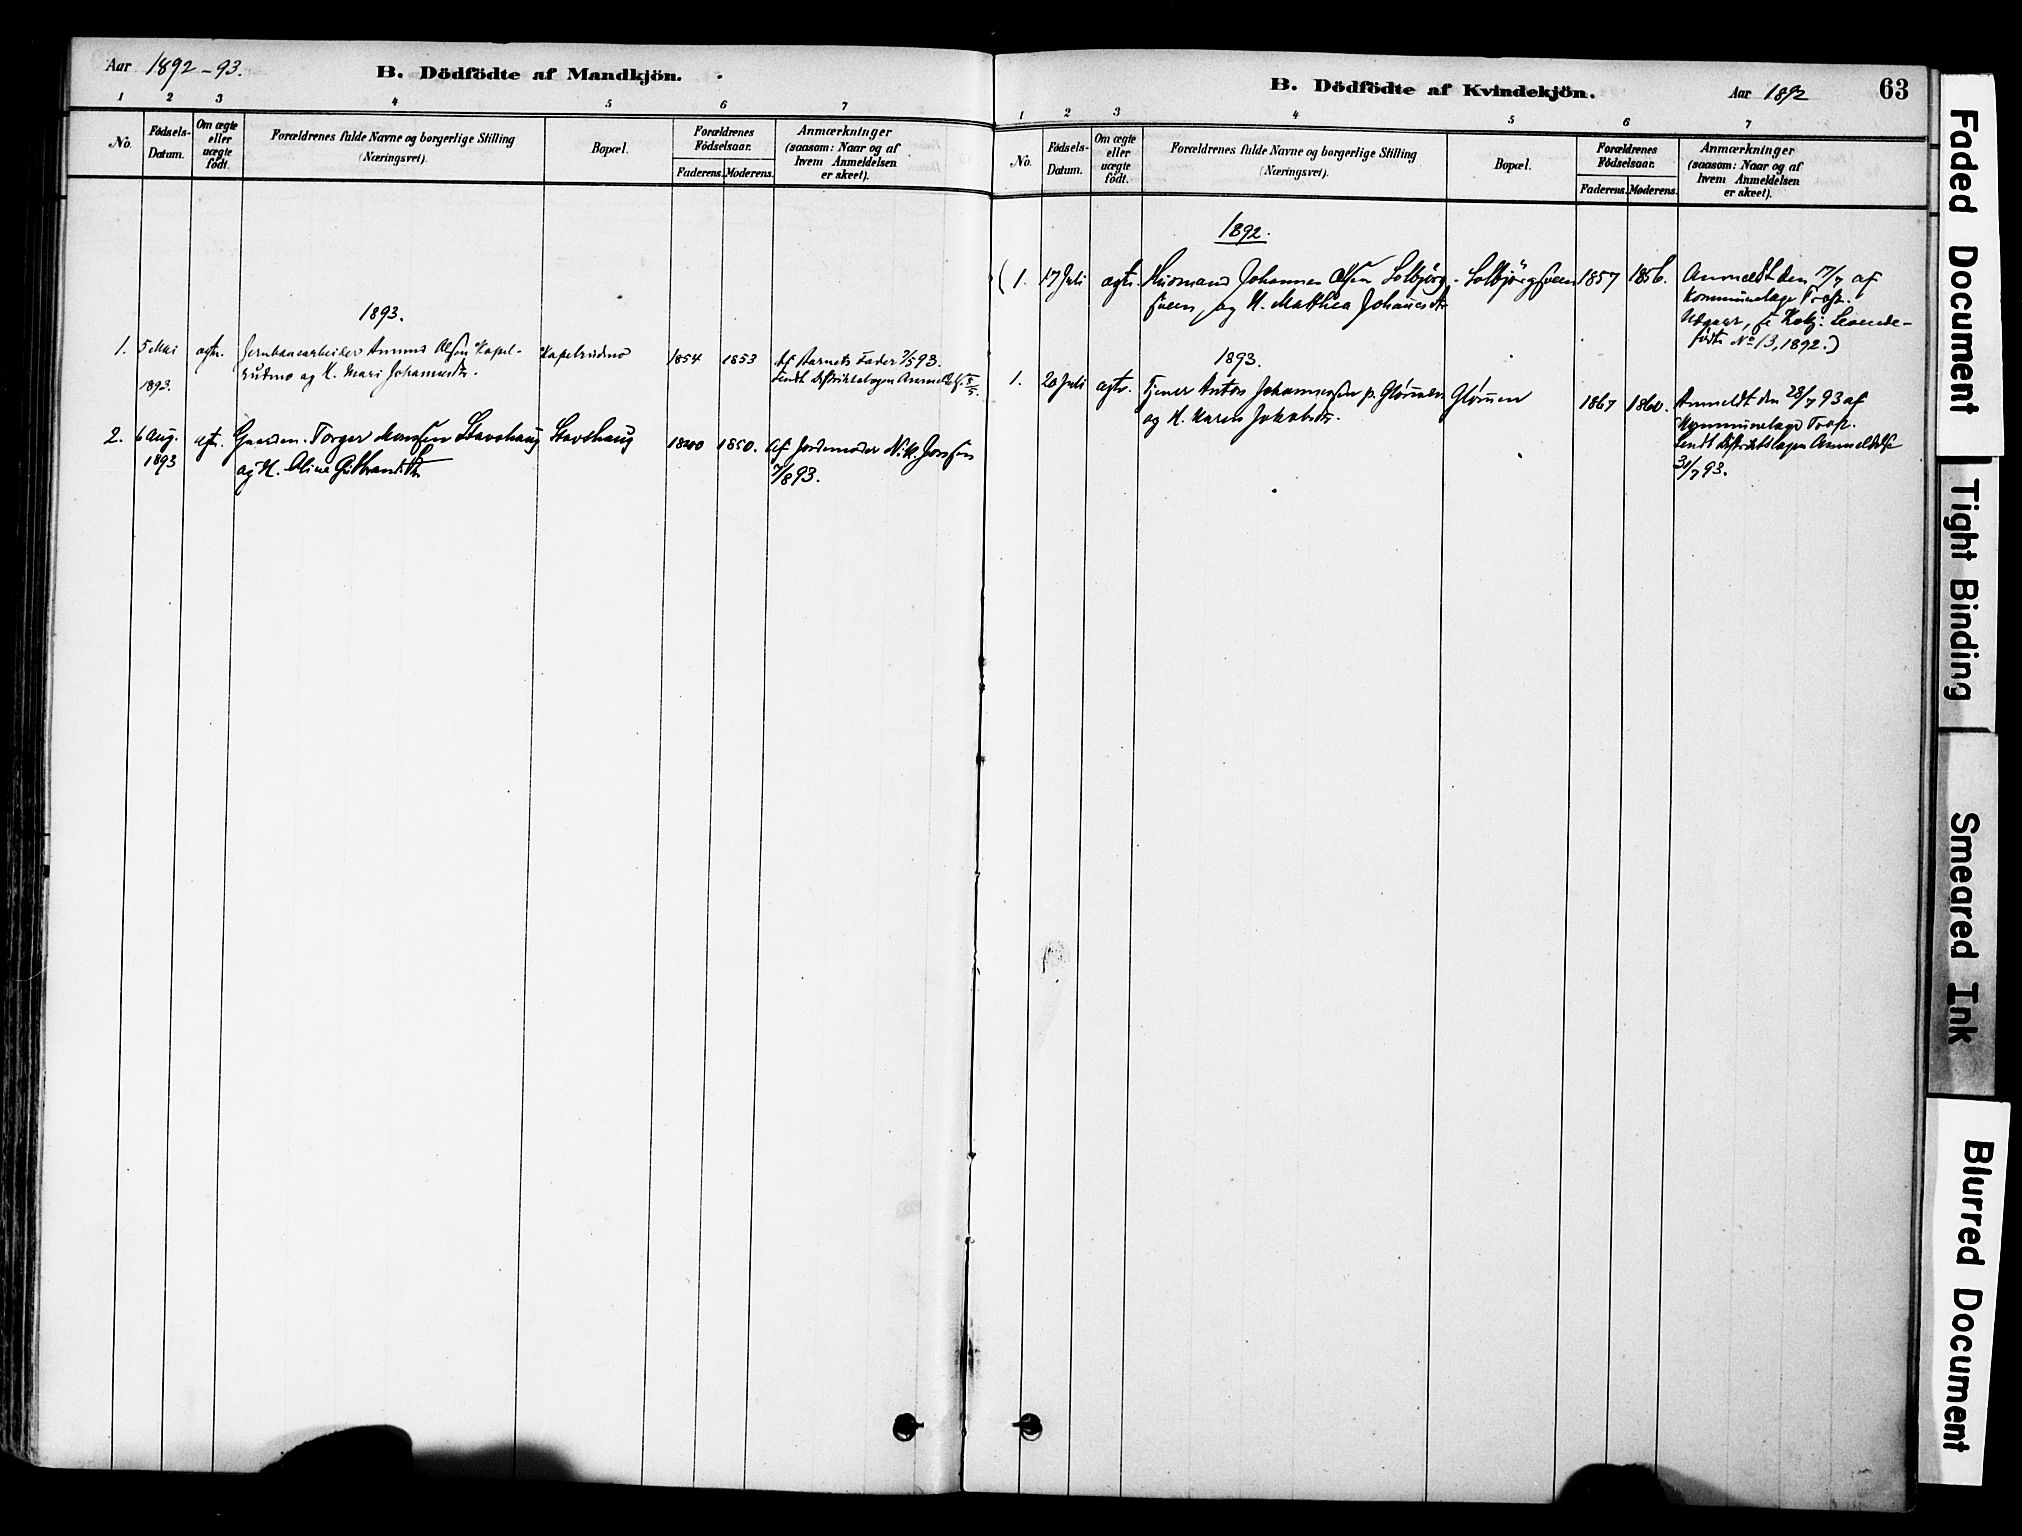 Aar 1892-93.
B. Dödfödte af Mandkjön.
1 2 3 4 5 6 7
No.
Födsels-
Datum.
Om ægte
eller
uægte
födt.
Forældrenes fulde Navne og borgerlige Stilling
(Næringsvei).
Bopæl.
Forældrenes
Födselsaar.
Faderens. Moderens.
Anmærkninger
(saasom: Naar og af
hvem Anmeldelsen
er skeet).
1893.
1. 5 Mai
1893.
ægte.
Jernbanearbeider Amund Olsen Kapel-
rudmo og H. Mari Johannesdtr.
Kapelrudmo
1854 1853
Af Barnets Fader 7/5 93.
Sendt Distriktslægen
2. 6 Aug.
1893
Gaardm. Torger Hansen Stavshaug
og H. Oline Gulbrandsdtr.
Stavshaug
1840 1850.
Af Jordemoder
7/8 93.
B. Dödfödte af Kvindekjön.
Aar 1892
63
1 2 3 4 5 6 7
No.
Födsels-
Datum.
Om ægte
eller
uægte
födt.
Forældrenes fulde Navne og borgerlige Stilling
(Næringsvei).
Bopæl.
Forældrenes
Födselsaar.
Faderens. Moderens.
Anmærkninger
(saasom: Naar og af
hvem Anmeldelsen
er skeet).
1892.
(1. 17 Juli ægte. Husmand Johannes Olsen Solbjørg-
sveen, og H. Mathea Johannesdtr
Solbjørgsveen
1857 1856.
Anmeldt den 17/7 af
Kommunelæge Trosp.
Udgaar, se Levende-
födte No 13, 1892.)
1893.
1. 20 Juli ægte. Tjener Anton Johannessen p. Glömmen
og H. Karen Jakobsdtr.
Glömmen
1867 1860.
Anmeldt den 28/7 93 af
Kommunelæge Trosp.
Sendt Distriktslægen Anmeldelse
31/7 93.
Faded Document
Tight Binding
Smeared Ink
Blurred Document